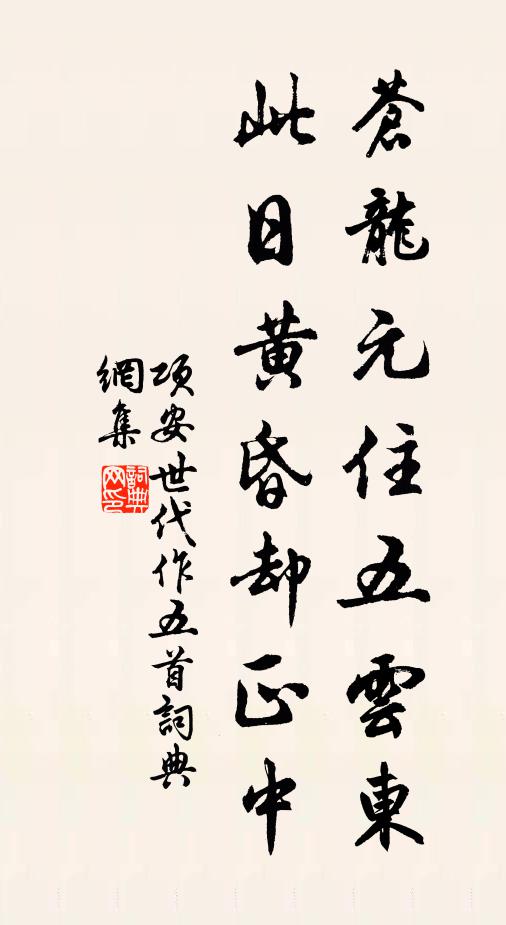 蒼龍元住五雲東
此日黃昏却正中
項安世代作五首詞典
網集
詞典
网印